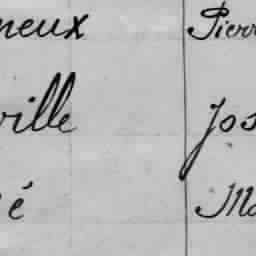 neux Pierr
ville Jos
é Ma